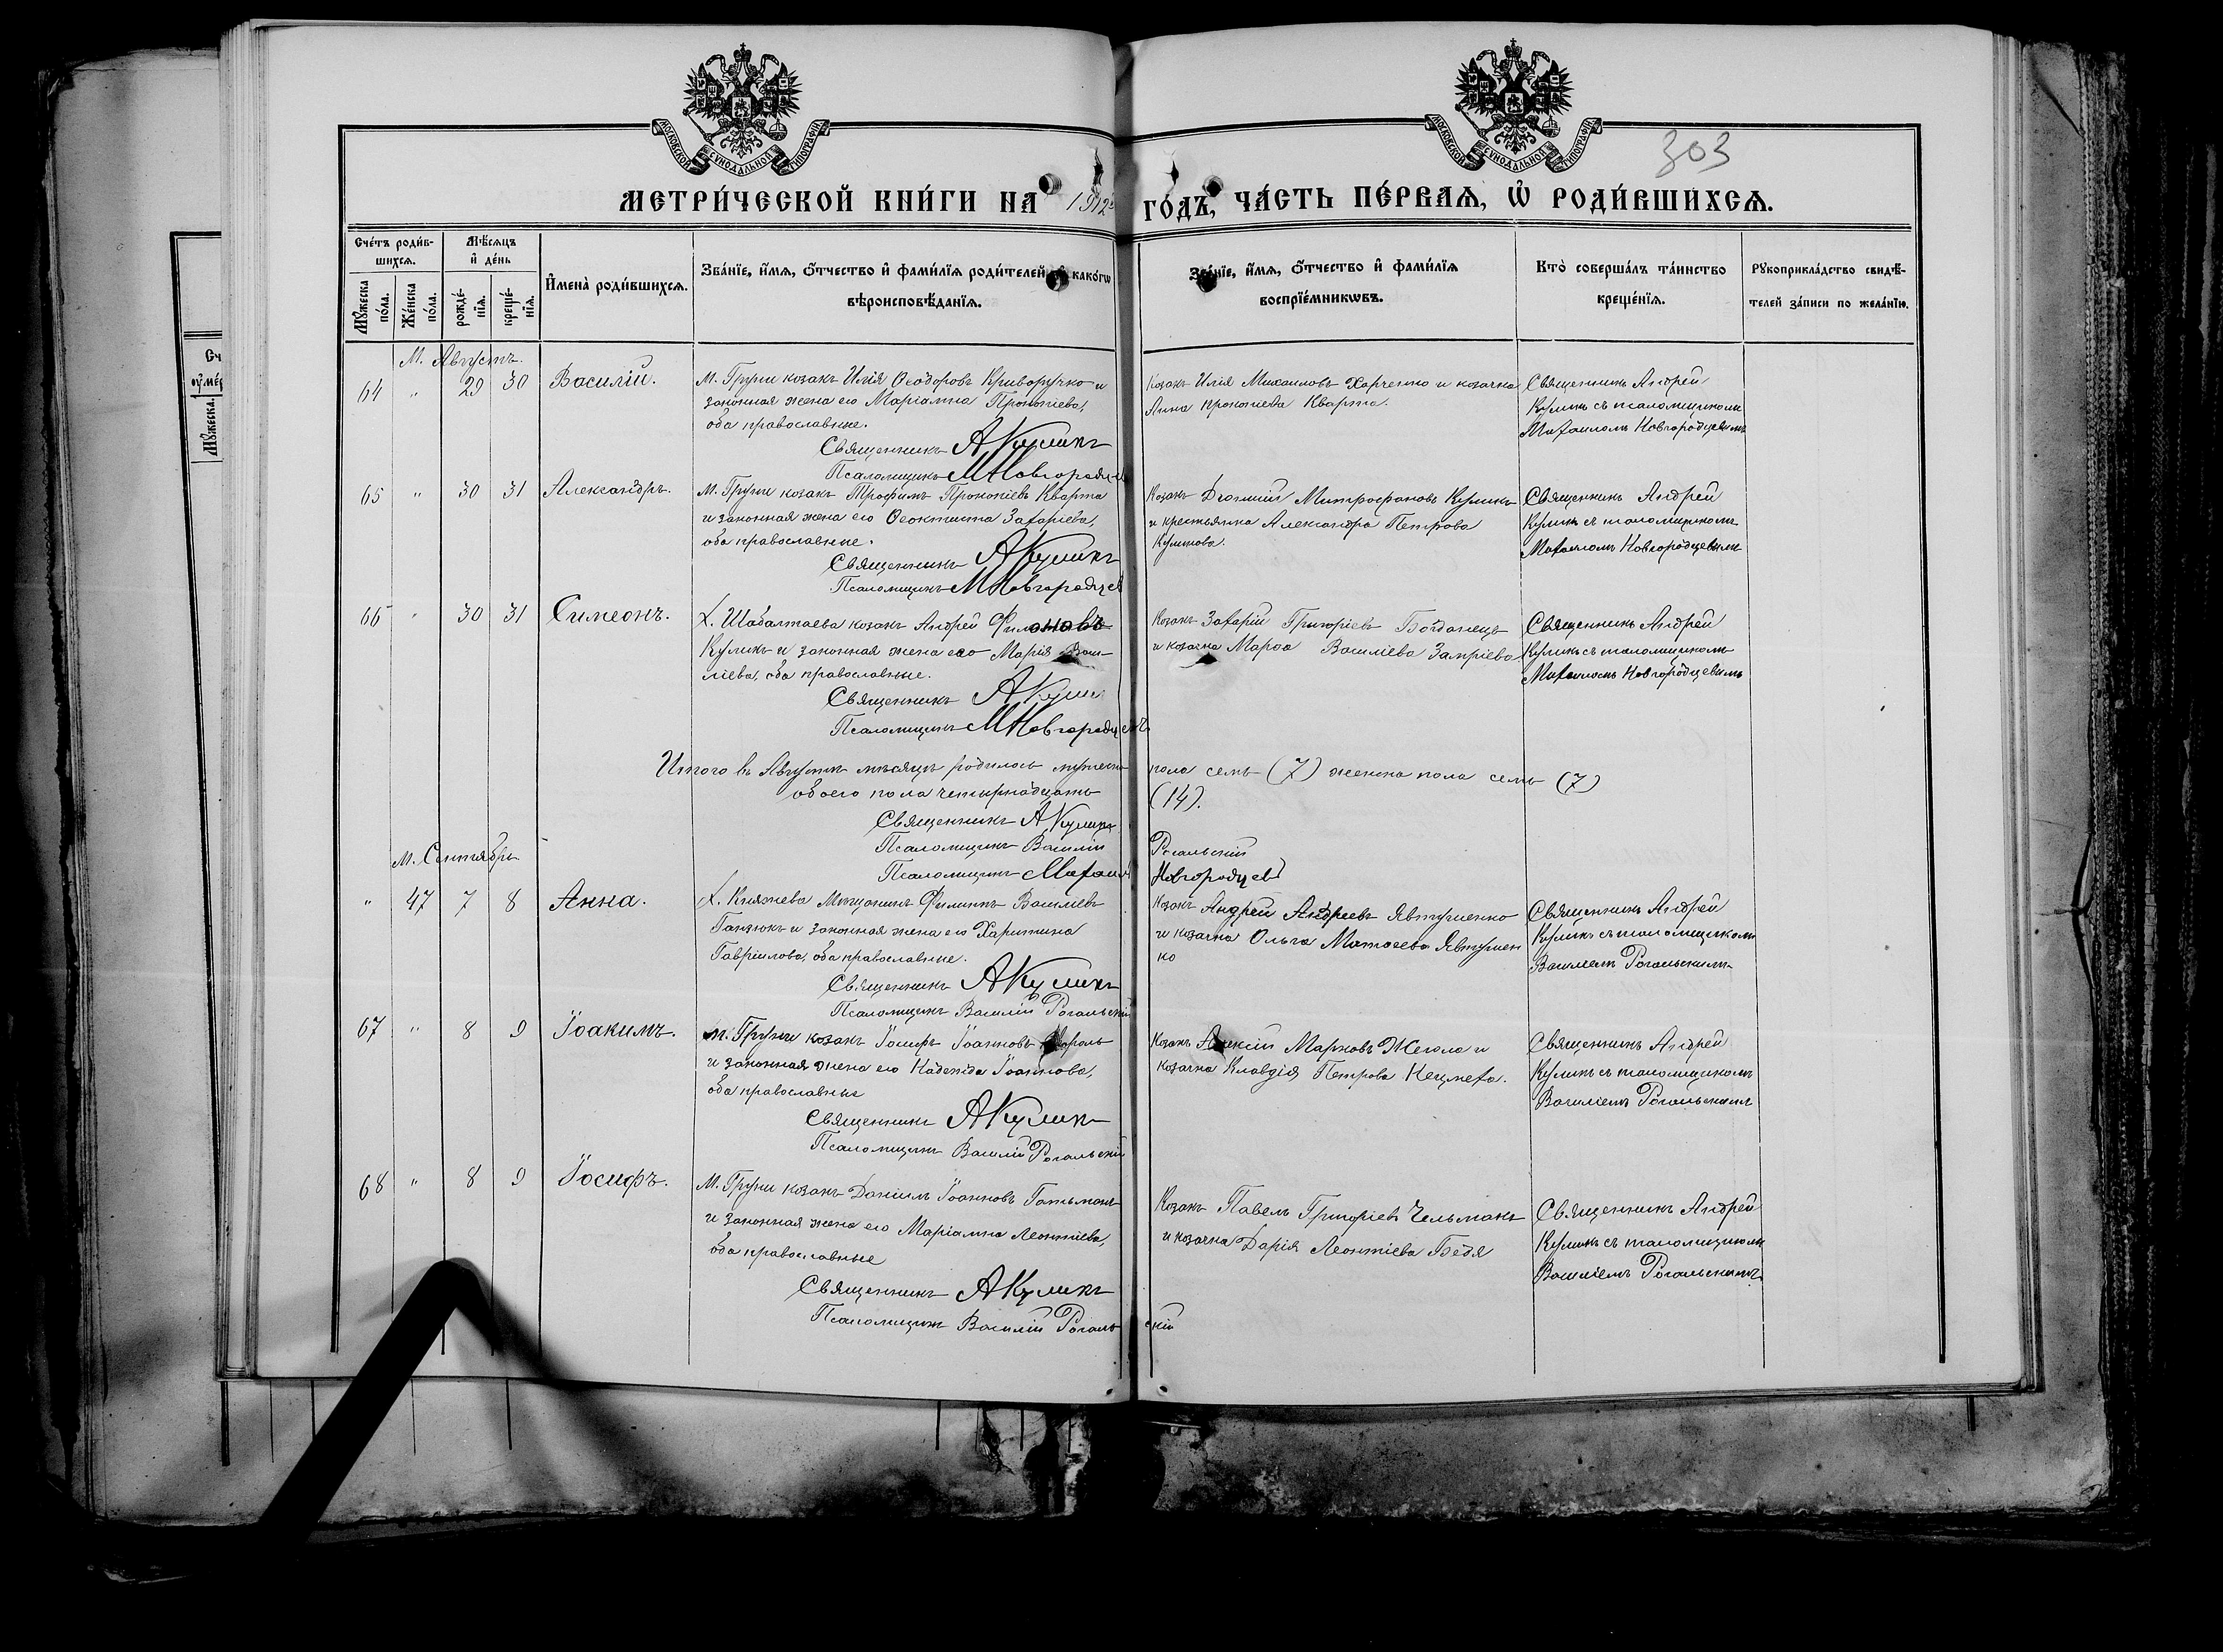 МОСКОВСКОЙ СѴНОДАЛЬНОЙ ТИПОГРАФІИ
МОСКОВСКОЙ СѴНОДАЛЬНОЙ ТИПОГРАФІИ
303
МЕТРИ́ЧЕСКОЙ КНИ́ГИ НА 1912 ГО́ДЪ, ЧА́СТЬ ПЕ́РВАѦ, Ѡ РОДИ́ВШИХСѦ.
Сче́тъ роди́в-
шихсѧ.
Мꙋ́жеска по́ла.
Же́нска по́ла.
Мѣ́сѧцъ
и҆ де́нь
рожде́-
нїѧ.
креще́-
нїѧ.
И҆мена̀ роди́вшихсѧ.
Зва́нїе, и҆́мѧ, ѻ҆́тчество и҆ фами́лїѧ роди́телей, како́гѡ
вѣроисповѣ́данїѧ.
Зва́нїе, и҆́мѧ, ѻ҆́тчество и҆ фами́лїѧ
воспрїе́мникѡвъ.
Кто̀ соверша́лъ та́инство
креще́нїѧ.
Рꙋкоприкла́дство свидѣ́-
телей за́писи по жела́нїю.
М. Августъ.
64 " 29 30 Василій.
М. Груни козакъ Илія Ѳеодоровъ Криворучко и
законная жена его Маріамна Прокопіева,
оба православные.
Священникъ АКуликъ
Псаломщикъ МНовгородцевъ
Козакъ Илія Михаиловъ Харченко и козачка
Анна Прокопіева Кварта.
Священникъ Андрей
Куликъ съ псаломщикомъ
Михаиломъ Новгородцевымъ
65 " 30 31 Александръ.
М. Груни козакъ Трофимъ Прокопіевъ Кварта
и законная жена его Ѳеоктиста Захаріева,
оба православные.
Священникъ АКуликъ
Псаломщикъ МНовгородцевъ
Козакъ Митрофановъ Куликъ
и крестьянка Александра Петрова
Куликова.
Священникъ Андрей
Куликъ съ псаломщикомъ
Михаиломъ Новгородцевымъ
66 " 30 31 Симеонъ.
Х. козакъ Андрей Филоновъ
Куликъ и законная жена его Марія Васи-
ліева, оба православные.
Священникъ АКуликъ
Псаломщикъ МНовгородцевъ
Козакъ Захарій Григоріевъ Богданецъ
и козачка Марѳа Василіева
Священникъ Андрей
Куликъ съ псаломщикомъ
Михаиломъ Новгородцевымъ
Итого въ Августѣ мѣсяцѣ родилось мужеска пола семь (7) женска пола семь (7)
обоего пола четырнадцать (14).
Священникъ АКуликъ
Псаломщикъ Василій Рогальскій
Псаломщикъ Михаилъ Новгородцевъ
М. Сентябрь
" 47 7 8 Анна.
Х. Княжева Мѣщанинъ Филиппъ Василіевъ
Ганзюкъ и законная жена его Харитина
Гавріилова, оба православные.
Священникъ АКуликъ
Псаломщикъ Василій Рогальскій
Козакъ Андрей Андреевъ Явтушенко
и козачка Ольга Матѳеева Явтушен
ко
Священникъ Андрей
Куликъ съ псаломщикомъ
Василіемъ Рогальскимъ
67 " 8 9 Іоакимъ.
м. Груни козакъ Іосифъ Іоанновъ
и законная жена его Надежда Іоаннова,
оба православные
Священникъ АКуликъ
Псаломщикъ Василій Рогальскій
Козакъ Алексій Марковъ Жегла и
козачка Клавдія Петрова
Священникъ Андрей
Куликъ съ псаломщикомъ
Василіемъ Рогальскимъ
68 " 8 9 Іосифъ.
М. Груни козакъ Даніилъ Іоанновъ Гатьманъ
и законная жена его Маріамна Леонтіева,
оба православные
Священникъ АКуликъ
Псаломщикъ Василій Рогальскій
Козакъ Павелъ Григоріевъ Чельманъ
и козачка Дарія Леонтіева Бедя
Священникъ Андрей
Куликъ съ псаломщикомъ
Василіемъ Рогальскимъ